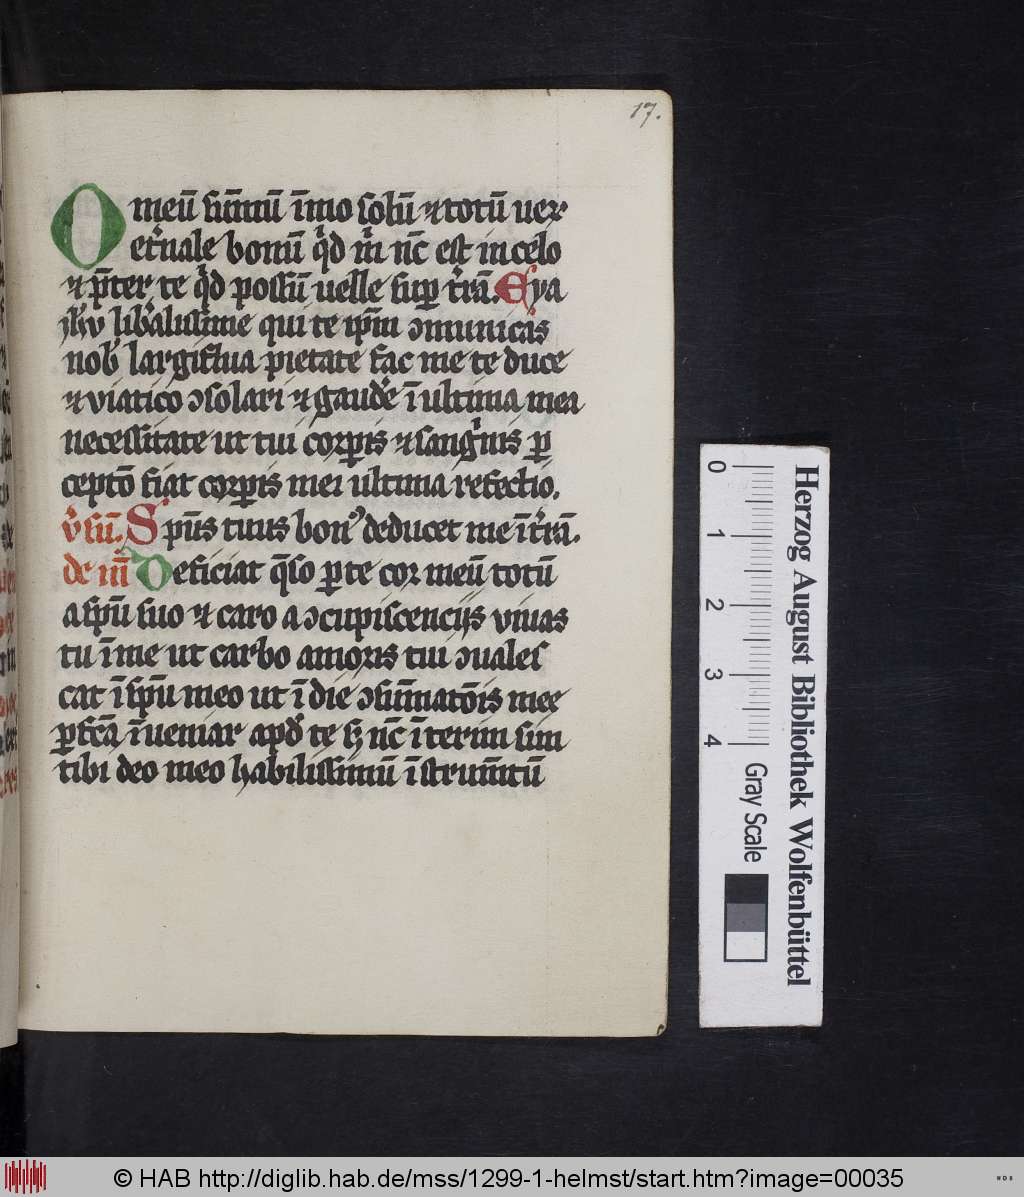 17.
O meū sūmū īmo solū ⁊ totū ver
et̾nale bonū qd̾ m̄ nc̄ est in celo
⁊ p̄ter te qd̾ possū uelle sup̱ t̾rā. Eya
jhū lib̾alissime qui te ip̄m ↄmunicas
nob̾ largiflua pietate fac me te duce
⁊ viatico ↄsolari ⁊ gaude̾ ī ultima mea
necessitate ut tui corp̱is ⁊ sang̾nis p̱
ceptō fiat corp̱is mei ultima refectio.
v̾sū. Spūs tuus bonꝰ deducet me ī t̾rā.
de m̄ Deficiat q̄so p̱ te cor meū totū
a spū suo ⁊ caro a ↄcupiscencijs vivas
tu ī me ut carbo amoris tui ↄuales
cat ī spū meo ut ī die ↄsūmatōis mee
p̱fc̄a īueniar apd̾ te ꜩ nc̄ īterim sim
tibi deo meo habilissimū īstrumētū
0 1 2 3 4
Gray Scale
Herzog August Bibliothek Wolfenbüttel
© HAB http://diglib.hab.de/mss/1299-1-helmst/start.htm?image=00035